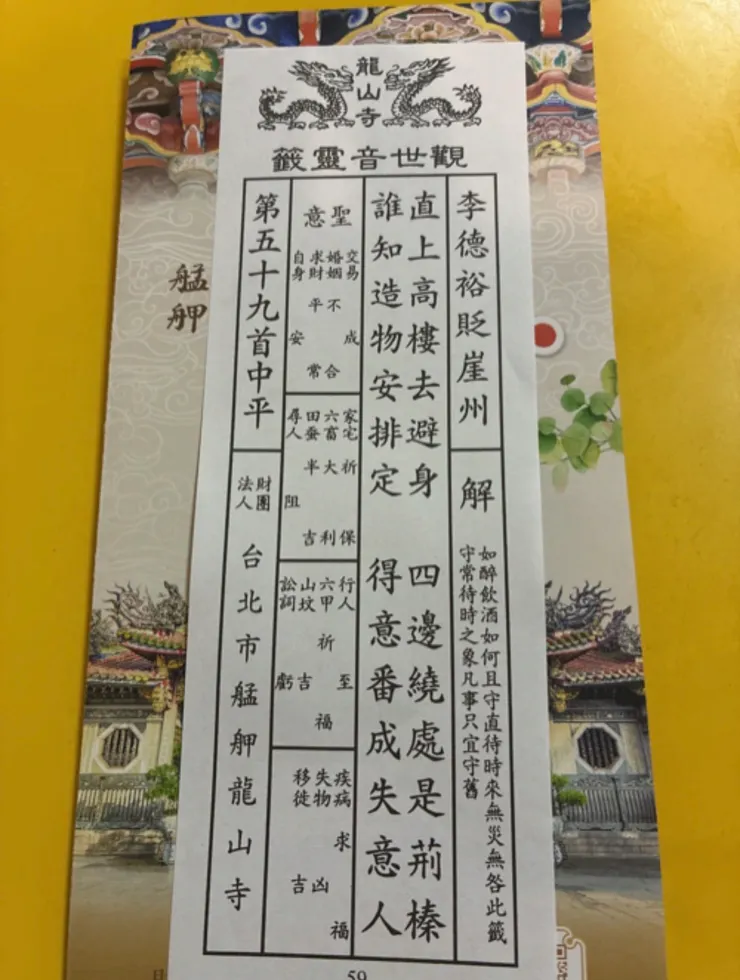 龍山寺
觀世音靈籤
李德裕貶崖州
解
如醉飲酒如何且守直待時來無災無咎此籤
守常待時之象凡事只宜守舊
直上高樓去避身 四邊繞處是荊榛
誰知造物安排定 得意番成失意人
聖意
交易 成
婚姻 不合
求財 平常
自身 安
家宅 祈保
六畜 大利
田蚕 半吉
尋人 阻
行人 至
六甲 祈福
山坟 吉
訟詞 虧
疾病 求福
失物 凶
移徙 吉
第五十九首中平
財團法人 台北市艋舺龍山寺
59
艋舺